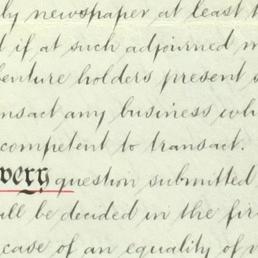 ly newspaper at least t
d if at such adjourned m
enture holders present s
nsact any business wh
competent to transact.
very question submitted
ll be decided in the fir
case of an equality of v